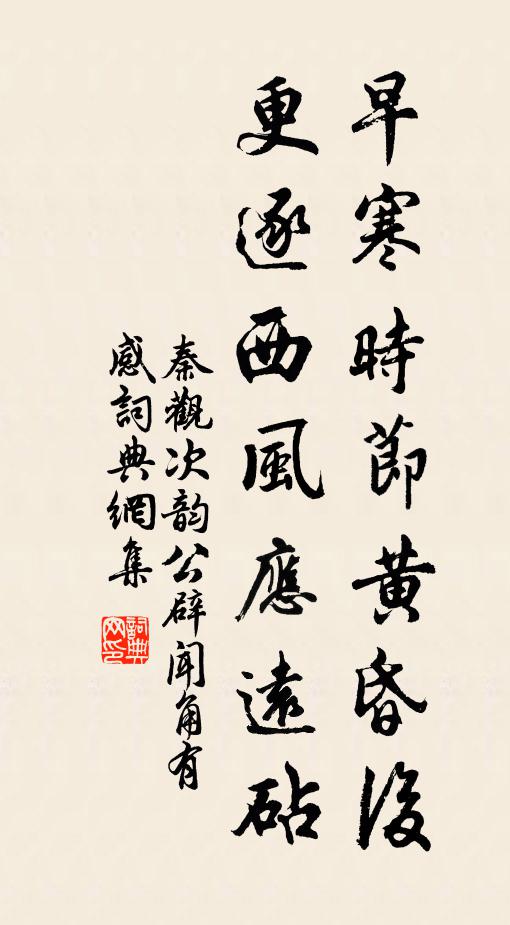 早寒時節黃昏後
更逐西風應遠砧
秦觀次韵公辟聞角有
感詞典網集
詞典網印